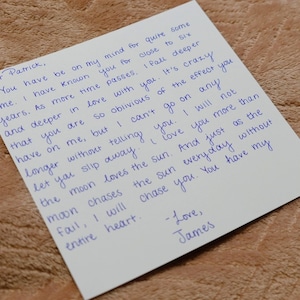 Patrick,
You have be on my mind for quite some
time. I have known you for close to six
years. As more time passes, I fall deeper
and deeper in love with you. It's crazy
that you are so oblivious of the effect you
have on me, but I can't go on any
longer without telling you. I will not
let you slip away. I love you more than
the moon loves the sun. And just as the
moon chases the sun everyday without
fail, I will chase you. You have my
entire heart.
-Love,
James